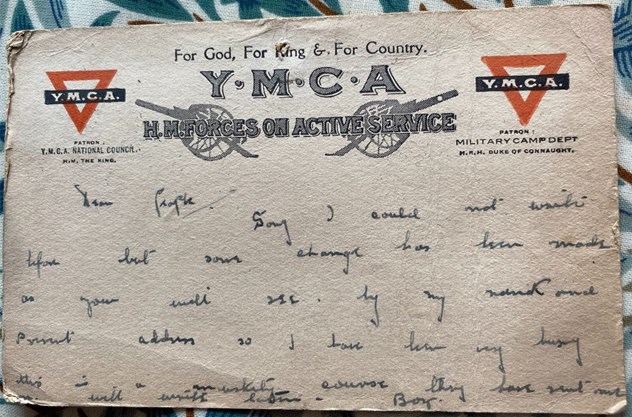 For God, For King & For Country.
Y·M·C·A
H.M. FORCES ON ACTIVE SERVICE
Y.M.C.A.
PATRON:
Y.M.C.A. NATIONAL COUNCIL.
H.M. THE KING.
Y.M.C.A.
PATRON:
MILITARY CAMP DEPT
H.R.H. DUKE OF CONNAUGHT.
Dear People
Sorry I could not write
before but some change has been made
as you will see. by my and
Present address so I have been very busy
this is a musketry course they have sent me
will write later.